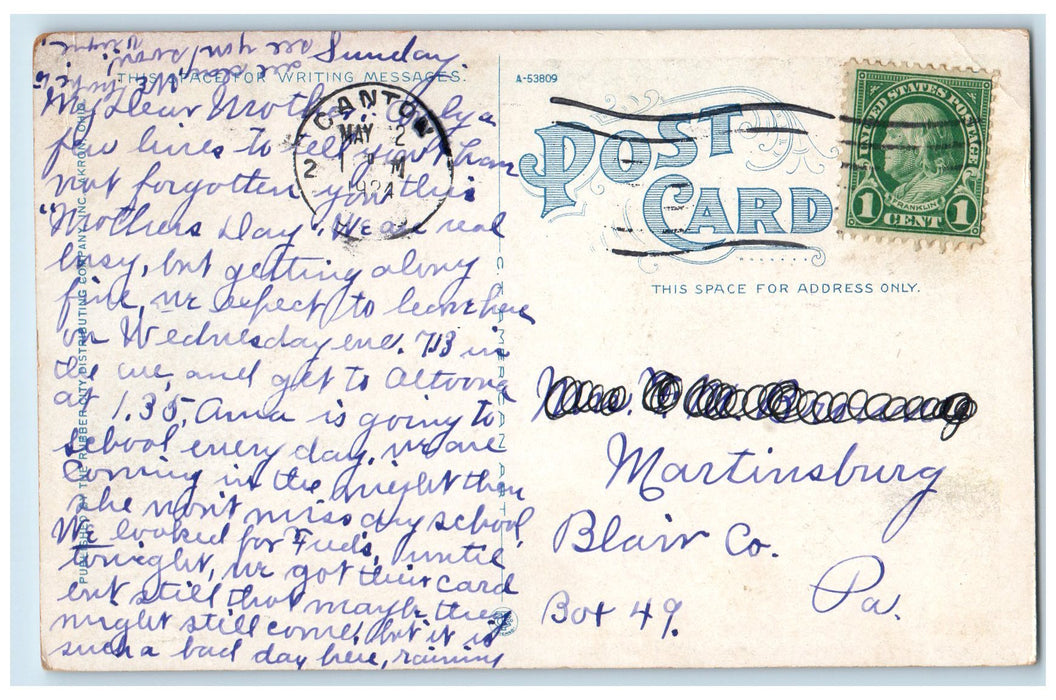 Sunday
THIS SPACE FOR WRITING MESSAGES.
My Dear Mother, Only a
few lines to tell you I have
not forgotten you this
"Mothers Day". We are real
busy, but getting along
fine, we expect to leave here
on Wednesday eve. 7.13 in
the eve, and get to Altoona
at 1.35, Anna is going to
school every day, we are
coming in the night then
she won't miss any school,
We looked for Fred's, until
tonight, we got their card
but still that maybe they
might still come, but it is
such a bad day here, raining
see you
soon,
We
PUBLISHED BY THE RUBBER CITY DISTRIBUTING COMPANY, INC. AKRON, OHIO
C. T. AMERICAN ART
CANTON
MAY 12
2
1924
A-53809
POST
CARD
UNITED STATES POSTAGE
FRANKLIN
1 CENT 1
THIS SPACE FOR ADDRESS ONLY.
Martinsburg
Blair Co.
Pa.
Box 49.